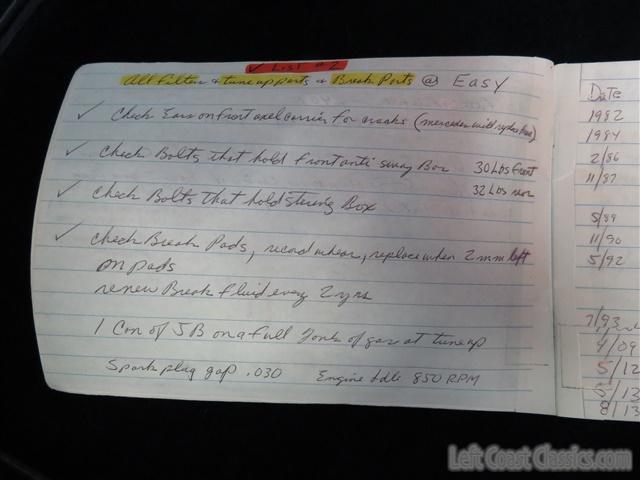 ✓ List #2
All Filters + tune up parts + Break Parts @ Easy
✓ Check Ears on front axel carrier for cracks (mercedes will replace free)
✓ Check Bolts that hold front anti sway Bar 30 Lbs front
32 Lbs rear
✓ Check Bolts that hold stering Box
✓ check Break Pads, record whear, replace when 2 mm left
on pads
renew Break fluid every 2 yrs
1 Can of SB on a full Tank of gas at tune up
Spark plug gap .030 Engine Idle 850 RPM
Date
1982
1984
2/86
11/87
5/89
11/90
5/92
7/93
4/09
5/12
5/13
8/13
Left Coast Classics.com